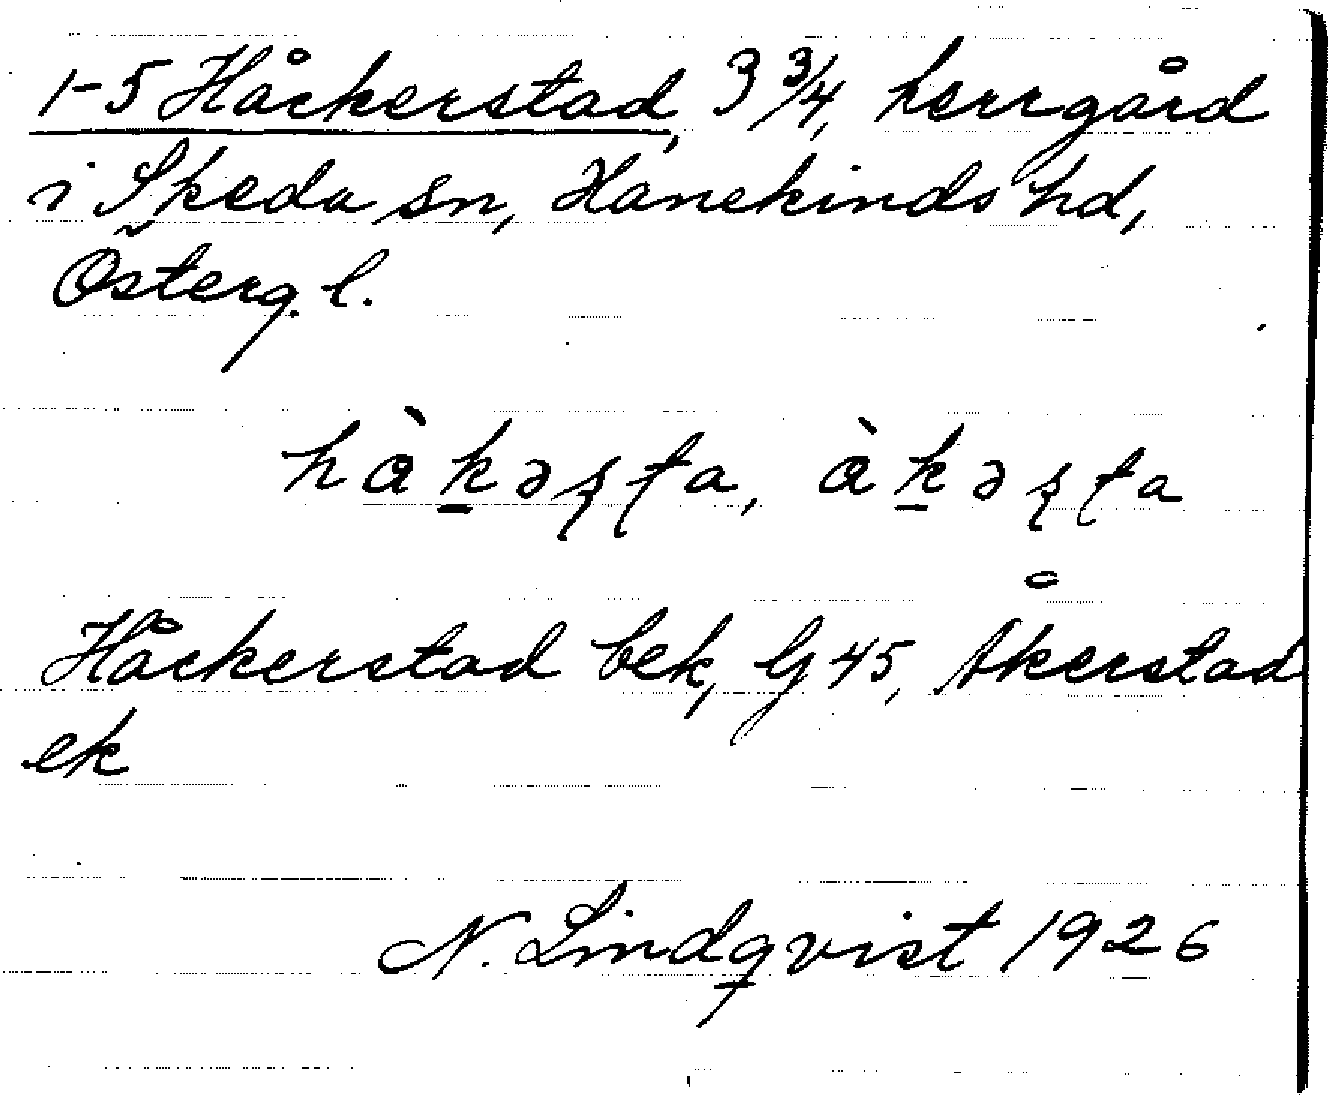 1-5 Håckerstad, 3 3/4, herrgård
i Skeda sn, Hanekinds hd,
Österg. l.
hàk̲əʂʈa, àk̲əʂʈa
Håckerstad bek, G 45, Åkerstad
ek
N. Lindqvist 1926